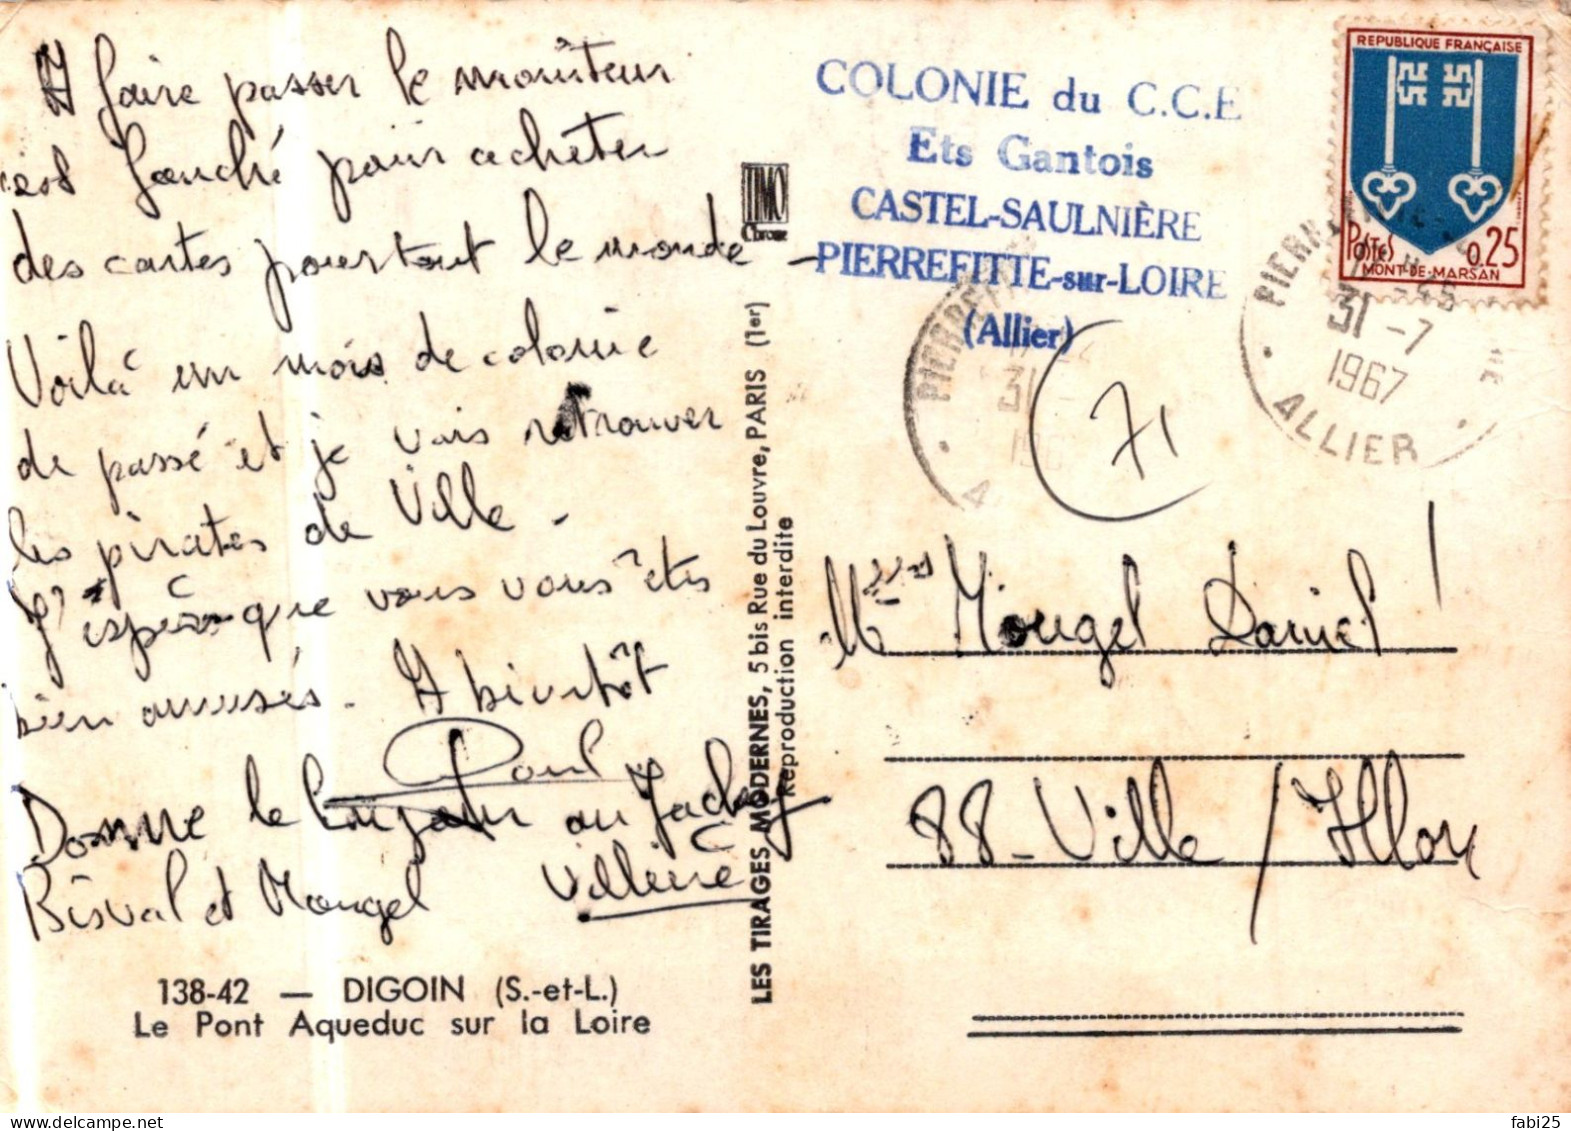 A faire passer le moniteur
est fauché pour acheter
des cartes pour tout le monde -
Voilà un mois de colonie
de passé et je vais retrouver
les pirates de Ville -
J'espère que vous vous êtes
bien amusés - A bientôt
Paul
Donne le au Jacky
Bisval et Mougel Villiere
138-42 — DIGOIN (S.-et-L.)
Le Pont Aqueduc sur la Loire
TIMO
LES TIRAGES MODERNES, 5 bis Rue du Louvre, PARIS (1er)
Reproduction interdite
COLONIE du C.C.E
Ets Gantois
CASTEL-SAULNIÈRE
PIERREFITTE-sur-LOIRE
(Allier)
REPUBLIQUE FRANÇAISE
POSTES 0.25
MONT-DE-MARSAN
31-7
1967
ALLIER
71
Mougel Daniel
88-Ville/Illon
fabi25